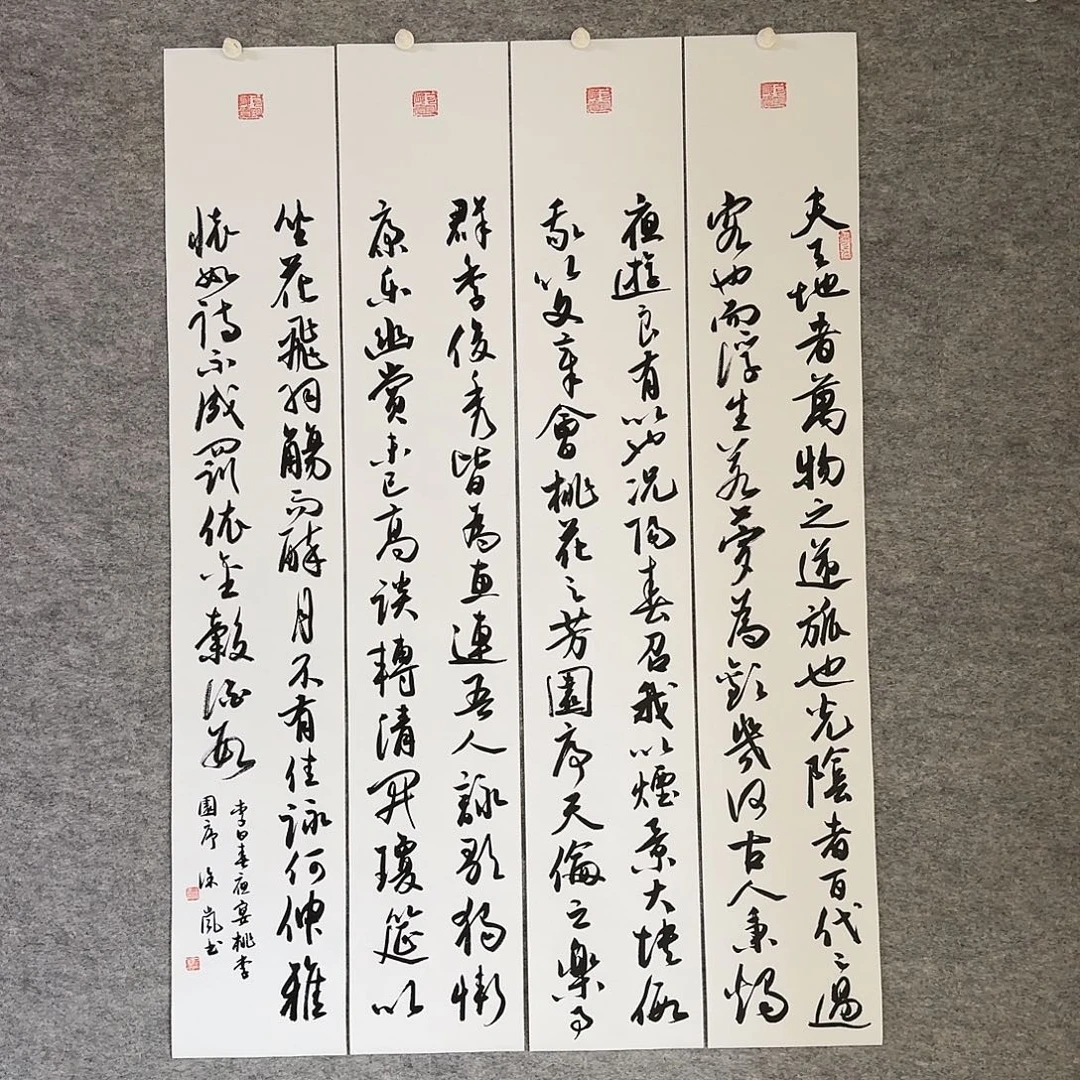 夫天地者萬物之逆旅也光陰者百代之過
客也而浮生若夢為歡幾何古人秉燭
夜遊良有以也况陽春召我以煙景大塊假
我以文章會桃花之芳園序天倫之樂事
群季俊秀皆為惠連吾人詠歌獨慚
康樂幽賞未已高談轉清開瓊筵以
坐花飛羽觴而醉月不有佳詠何伸雅
懷如詩不成罰依金穀酒數
李白春夜宴桃李
園序 嵐书